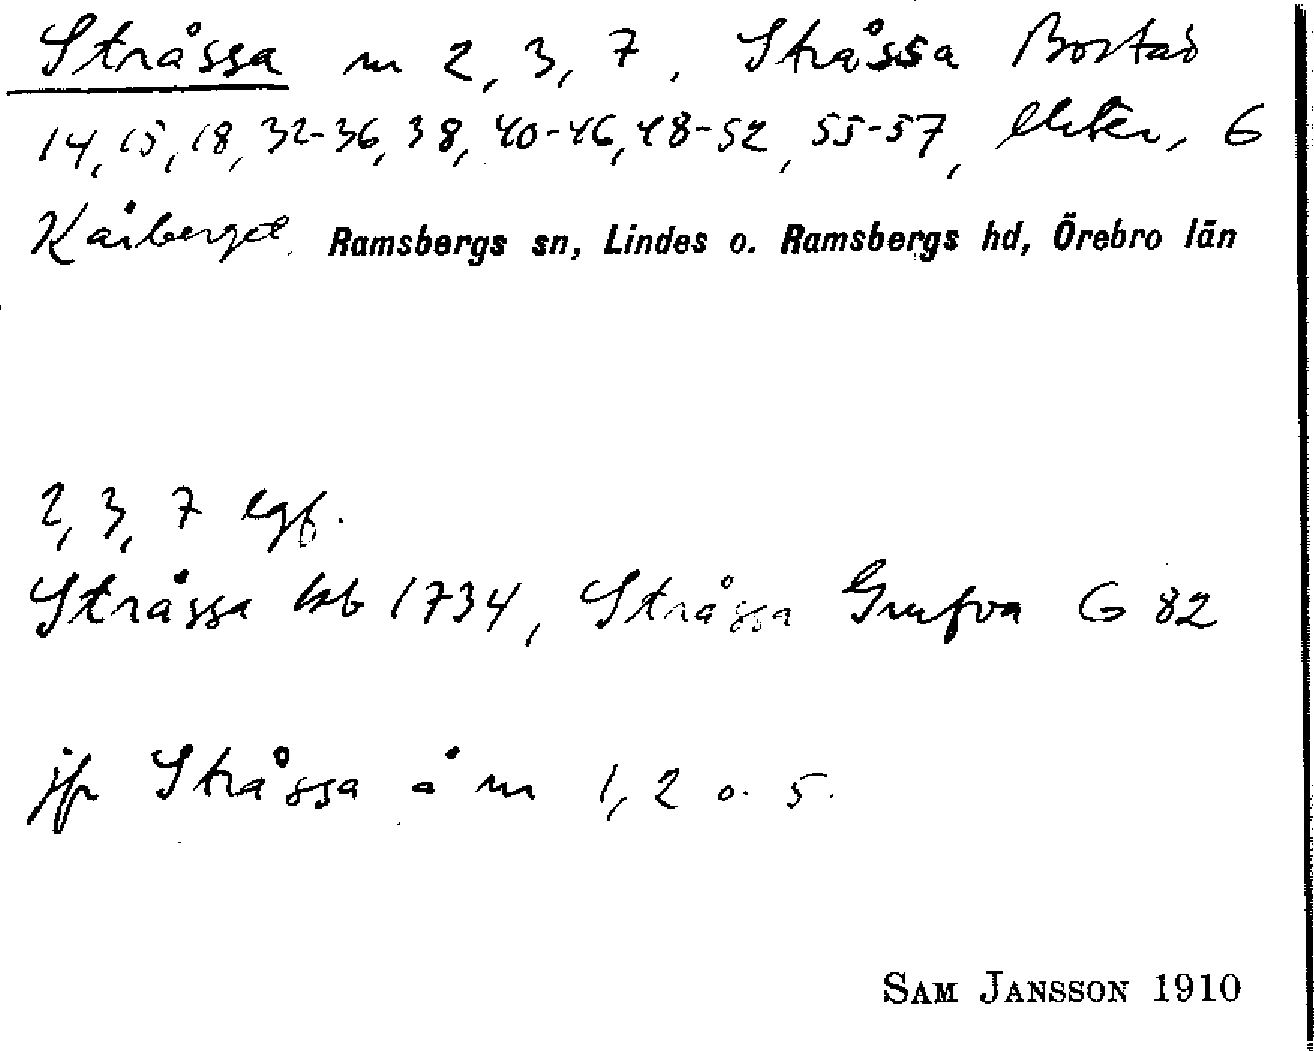 Stråssa m 2, 3, 7, Stråssa Bostad
14, 15, 18, 32-36, 38, 40-46, 48-52, 55-57, 6
Kåberget. Ramsbergs sn, Lindes o. Ramsbergs hd, Örebro län
2, 3, 7 egf.
Stråssa kb 1734, Stråssa Grufva G 82
jfr Stråssa å m 1, 2 o. 5.
SAM JANSSON 1910